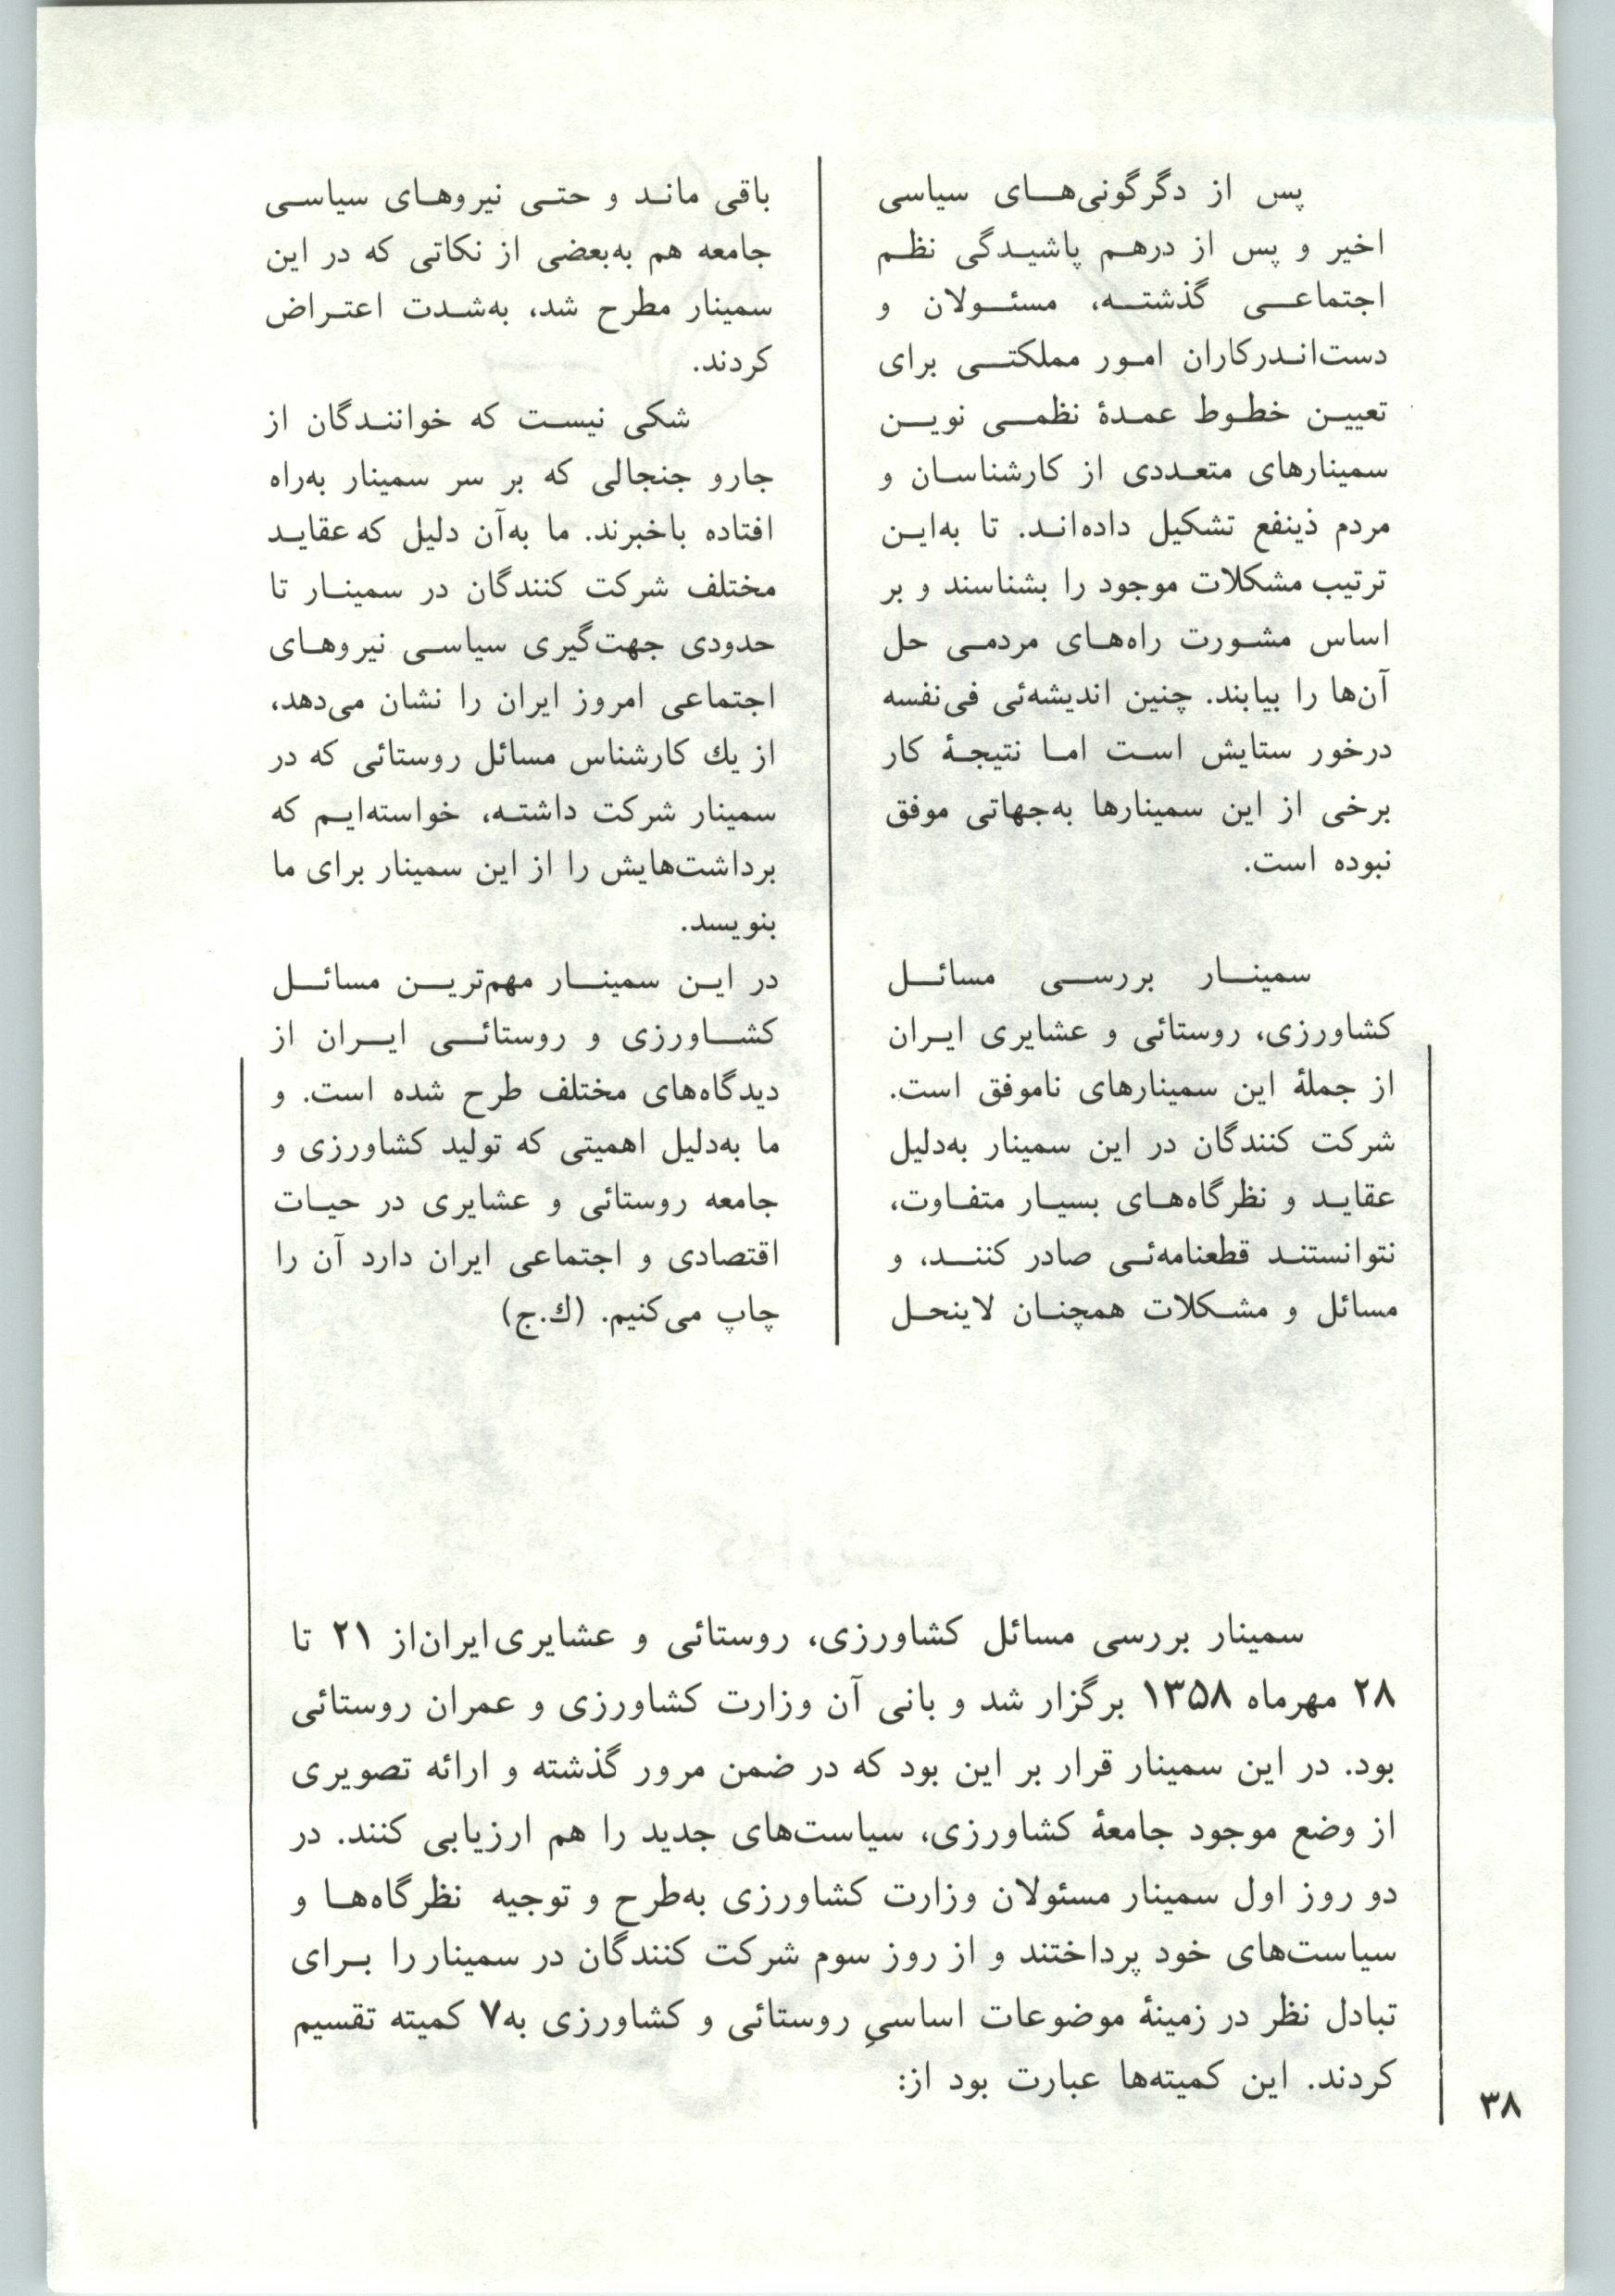 پس از دگرگونی‌های سیاسی
اخیر و پس از درهم پاشیدگی نظم
اجتماعی گذشته، مسئولان و
دست‌اندرکاران امور مملکتی برای
تعیین خطوط عمدهٔ نظمی نوین
سمینارهای متعددی از کارشناسان و
مردم ذینفع تشکیل داده‌اند. تا به‌این
ترتیب مشکلات موجود را بشناسند و بر
اساس مشورت راه‌های مردمی حل
آن‌ها را بیابند. چنین اندیشه‌ئی فی‌نفسه
درخور ستایش است اما نتیجهٔ کار
برخی از این سمینارها به‌جهاتی موفق
نبوده است.
سمینار بررسی مسائل
کشاورزی، روستائی و عشایری ایران
از جملهٔ این سمینارهای ناموفق است.
شرکت کنندگان در این سمینار به‌دلیل
عقاید و نظرگاه‌های بسیار متفاوت،
نتوانستند قطعنامه‌ئی صادر کنند، و
مسائل و مشکلات همچنان لاینحل
باقی ماند و حتی نیروهای سیاسی
جامعه هم به‌بعضی از نکاتی که در این
سمینار مطرح شد، به‌شدت اعتراض
کردند.
شکی نیست که خوانندگان از
جارو جنجالی که بر سر سمینار به‌راه
افتاده باخبرند. ما به‌آن دلیل که عقاید
مختلف شرکت کنندگان در سمینار تا
حدودی جهت‌گیری سیاسی نیروهای
اجتماعی امروز ایران را نشان می‌دهد،
از یك کارشناس مسائل روستائی که در
سمینار شرکت داشته، خواسته‌ایم که
برداشت‌هایش را از این سمینار برای ما
بنویسد.
در این سمینار مهم‌ترین مسائل
کشاورزی و روستائی ایران از
دیدگاه‌های مختلف طرح شده است. و
ما به‌دلیل اهمیتی که تولید کشاورزی و
جامعه روستائی و عشایری در حیات
اقتصادی و اجتماعی ایران دارد آن را
چاپ می‌کنیم. (ك.ج)
سمینار بررسی مسائل کشاورزی، روستائی و عشایری ایران از ۲۱ تا
۲۸ مهرماه ۱۳۵۸ برگزار شد و بانی آن وزارت کشاورزی و عمران روستائی
بود. در این سمینار قرار بر این بود که در ضمن مرور گذشته و ارائه تصویری
از وضع موجود جامعهٔ کشاورزی، سیاست‌های جدید را هم ارزیابی کنند. در
دو روز اول سمینار مسئولان وزارت کشاورزی به‌طرح و توجیه نظرگاه‌ها و
سیاست‌های خود پرداختند و از روز سوم شرکت کنندگان در سمینار را برای
تبادل نظر در زمینهٔ موضوعات اساسیِ روستائی و کشاورزی به۷ کمیته تقسیم
کردند. این کمیته‌ها عبارت بود از:
۳۸